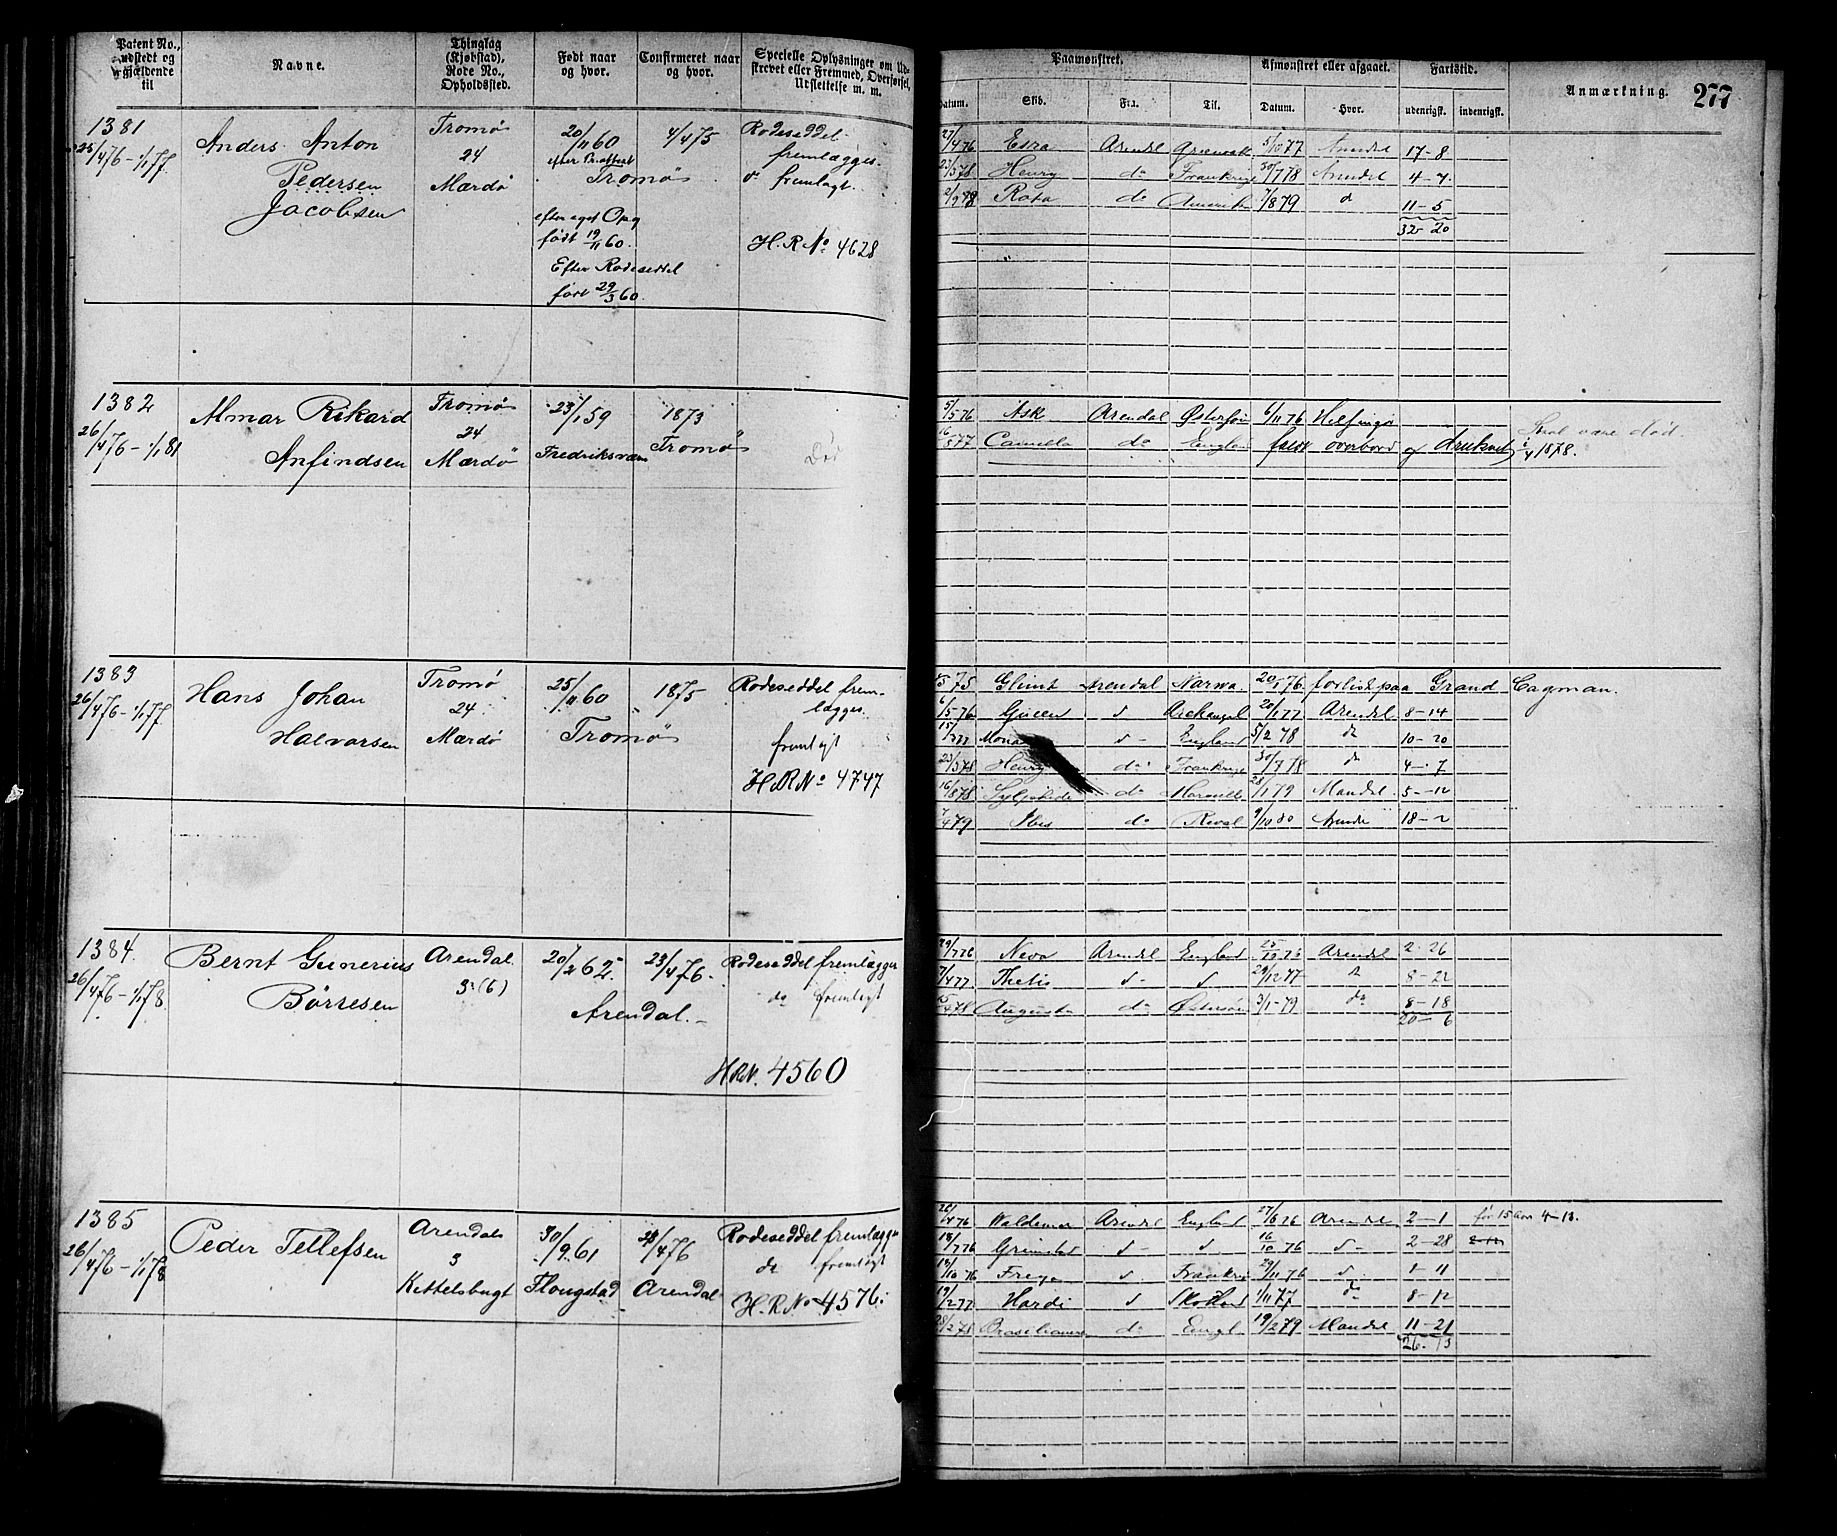 Patent No., udstedt og gjældende til
Navne.
Thinglag (Kjøbstad), Rode No., Opholdssted.
Født naar og hvor.
Confirmeret naar og hvor.
Specielle Oplysninger om Udskrevet eller Fremmed, Overførsel, Udslettelse m. m.
Paamønstret.
Afmønstret eller afgaaet.
Fartstid.
Anmærkning.
277
Datum.
Skib.
Fra.
Til.
Datum.
Hvor.
udenrigsk.
indenrigsk.
1381
25/4 76 - 1/1 77.
Anders Anton
Pedersen
Jacobsen
Tromø
24
Mærdø
20/11 60
Tromø
efter eget Opg
født 19/11 60.
Efter Rodeseddel
født 29/3 60.
4/4 75
Rodeseddel
fremlægges.
do fremlagt.
H.R No 4628
27/4 76 Arendl 5/10 77 Arendal 17-8
23/5 78 Henry do Frankrig 30/7 78 Arendal 4-7
2/9 78 Rota do Amerika 7/8 79 d 11-5
32-20
1382
26/4 76 - 1/1 81
Almar Rikard
Anfindsen
Tromø
24
Mærdø
23/1 59
Fredriksværn
1873
Tromø
Død
5/5 76 Ask Arendal Østersøen 6/11 76 Helsingør
16/5 77 Camilla do England faldt overbord og druknet
Skal være død
1/4 1878.
1383
26/4 76 - 1/1 77
Hans Johan
Halvorsen
Tromø
24
Mærdø
25/11 60
Tromø
1875
Rodeseddel frem-
lægges.
fremlagt
H.R No 4747
75 Glimt Arendal Narwa. 20/1 76 forlist paa Grand Cayman.
6/5 76 Queen d Archangel 20/1 77 Arendal 8-14
15/ 77 d- England 5/2 78 do 10-20
23/5 78 Henry do Frankrige 30/7 78 do 4-7
16/8 78 do 28/1 79 Mandal 5-12
7/4 79 Ibis do Reval 9/10 80 Arendl 18-2
1384.
26/4 76 - 1/1 78
Bernt Gunerius
Børresen
Arendal.
3 (6)
20/2 62
Arendal.
23/4 76.
Rodeseddel fremlægges
do fremlagt
H.R.N. 4560
29/7 76 Neva Arendl England Arendal 2-26
7/4 77 Thetis d- d 29/12 77 d 8-22
78 Augusta do Østersøen 3/1-79 do 8-18
20-6
1385
26/4 76 - 1/1 78
Peder Tellefsen
Arendal
3
Kittelsbugt
30/9 61
Flougstad
23/4 76
Arendal
Rodeseddel fremlægges
do fremlagt
H.R.No 4576.
4 76 Waldemar Arendl England 27/6 76 Arendal 2-1
før 15 Aar 4-13.
18/7 76 Grimstad d- d 16/10 76 d- 2-28
18/10 76 Freya d. Frankrig 29/11 76 d. 1-11
19/2 77 Hardi d Skotland 1/11 77 do 8-12
28/2 78 Brasilianeren do Engl. 19/2 79 Mandal 11-21
26-13